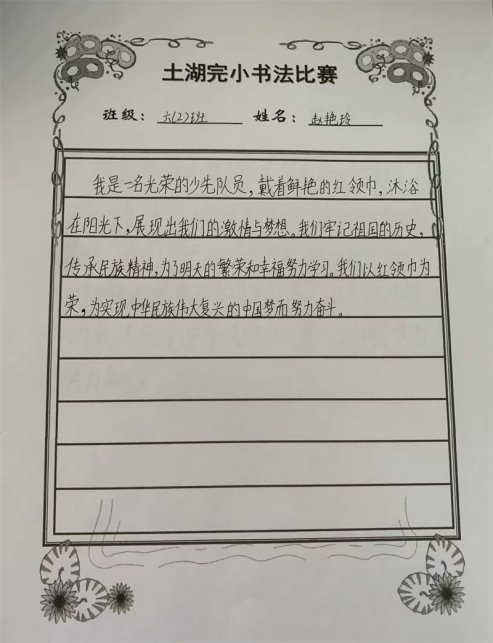 土湖完小书法比赛
班级：六(2)班 姓名：赵艳玲
我是一名光荣的少先队员，戴着鲜艳的红领巾，沐浴
在阳光下，展现出我们的激情与梦想。我们牢记祖国的历史，
传承民族精神，为了明天的繁荣和幸福努力学习。我们以红领巾为
荣，为实现中华民族伟大复兴的中国梦而努力奋斗。